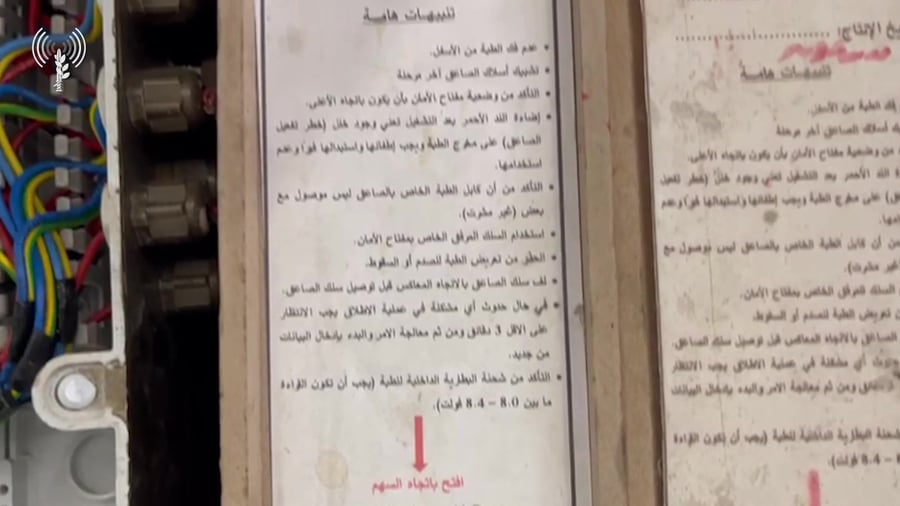 تنبيهات هامة
• عدم فك الطبة من الأسفل.
• تشبيك أسلاك الصاعق آخر مرحلة
• التأكد من وضعية مفتاح الأمان بأن يكون باتجاه الأعلى.
• إضاءة اللد الأحمر بعد التشغيل تعني وجود خلل (خطر تفعيل
الصاعق) على مخرج الطبة ويجب إطفائها واستبدالها فورا وعدم
استخدامها.
• التأكد من أن كابل الطبة الخاص بالصاعق ليس موصول مع
بعض (غير مشرت).
• استخدام السلك المرفق الخاص بمفتاح الأمان.
• الحظر من تعريض الطبة للصدم أو السقوط.
• لف سلك الصاعق بالاتجاه المعاكس قبل توصيل سلك الصاعق.
• في حال حدوث أي مشكلة في عملية الاطلاق يجب الانتظار
على الاقل 3 دقائق ومن ثم معالجة الامر والبدء بإدخال البيانات
من جديد.
• التأكد من شحنة البطارية الداخلية للطبة (يجب أن تكون القراءة
ما بين 8.0 – 8.4 فولت).
افتح باتجاه السهم
الإنتاج:
تنبيهات هامة
فك الطبة من الأسفل.
أسلاك الصاعق آخر مرحلة
من وضعية مفتاح الأمان بأن يكون باتجاه الأعلى.
اللد الأحمر بعد التشغيل تعني وجود خلل (خطر تفعيل
على مخرج الطبة ويجب إطفائها واستبدالها فورا وعدم
من أن كابل الطبة الخاص بالصاعق ليس موصول مع
غير مشرت).
السلك المرفق الخاص بمفتاح الأمان.
من تعريض الطبة للصدم أو السقوط.
الصاعق بالاتجاه المعاكس قبل توصيل سلك الصاعق.
حدوث أي مشكلة في عملية الاطلاق يجب الانتظار
دقائق ومن ثم معالجة الامر والبدء بإدخال البيانات
شحنة البطارية الداخلية للطبة (يجب أن تكون القراءة
– 8.4 فولت).